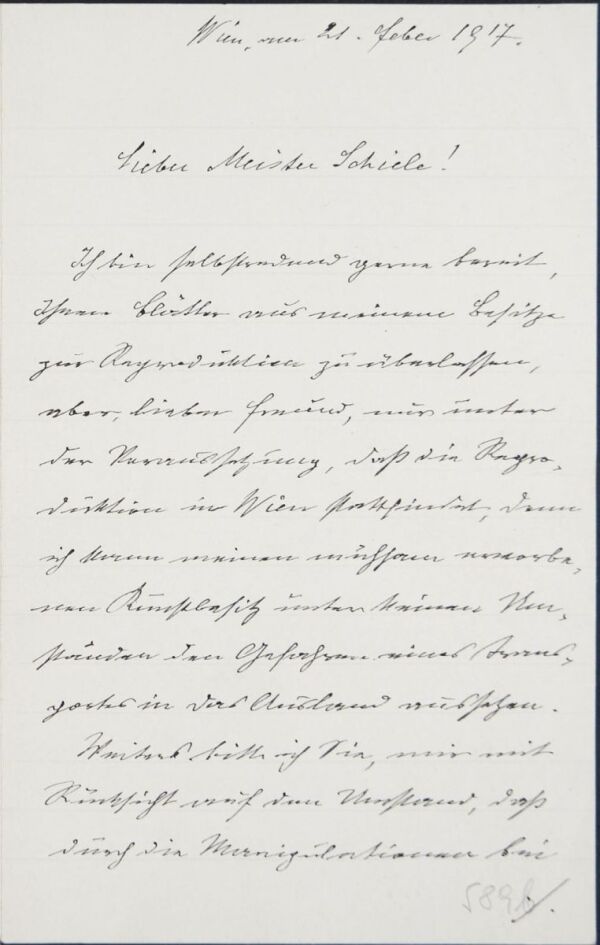 Wien, am 21. Feber 1917.
Lieber Meister Schiele!
Ich bin selbstredend gerne bereit,
Ihnen Blätter aus meinem Besitze
zur Reproduktion zu überlassen,
aber, lieber Freund, nur unter
der Voraussetzung, daß die Repro-
duktion in Wien stattfindet, denn
ich kann meinen mühsam erworbe-
nen Kunstbesitz unter keinen Um-
ständen den Gefahren eines Trans-
portes in das Ausland aussetzen.
Weiters bitte ich Sie, mir mit
Rücksicht auf den Umstand, daß
durch die Manipulationen bei
589